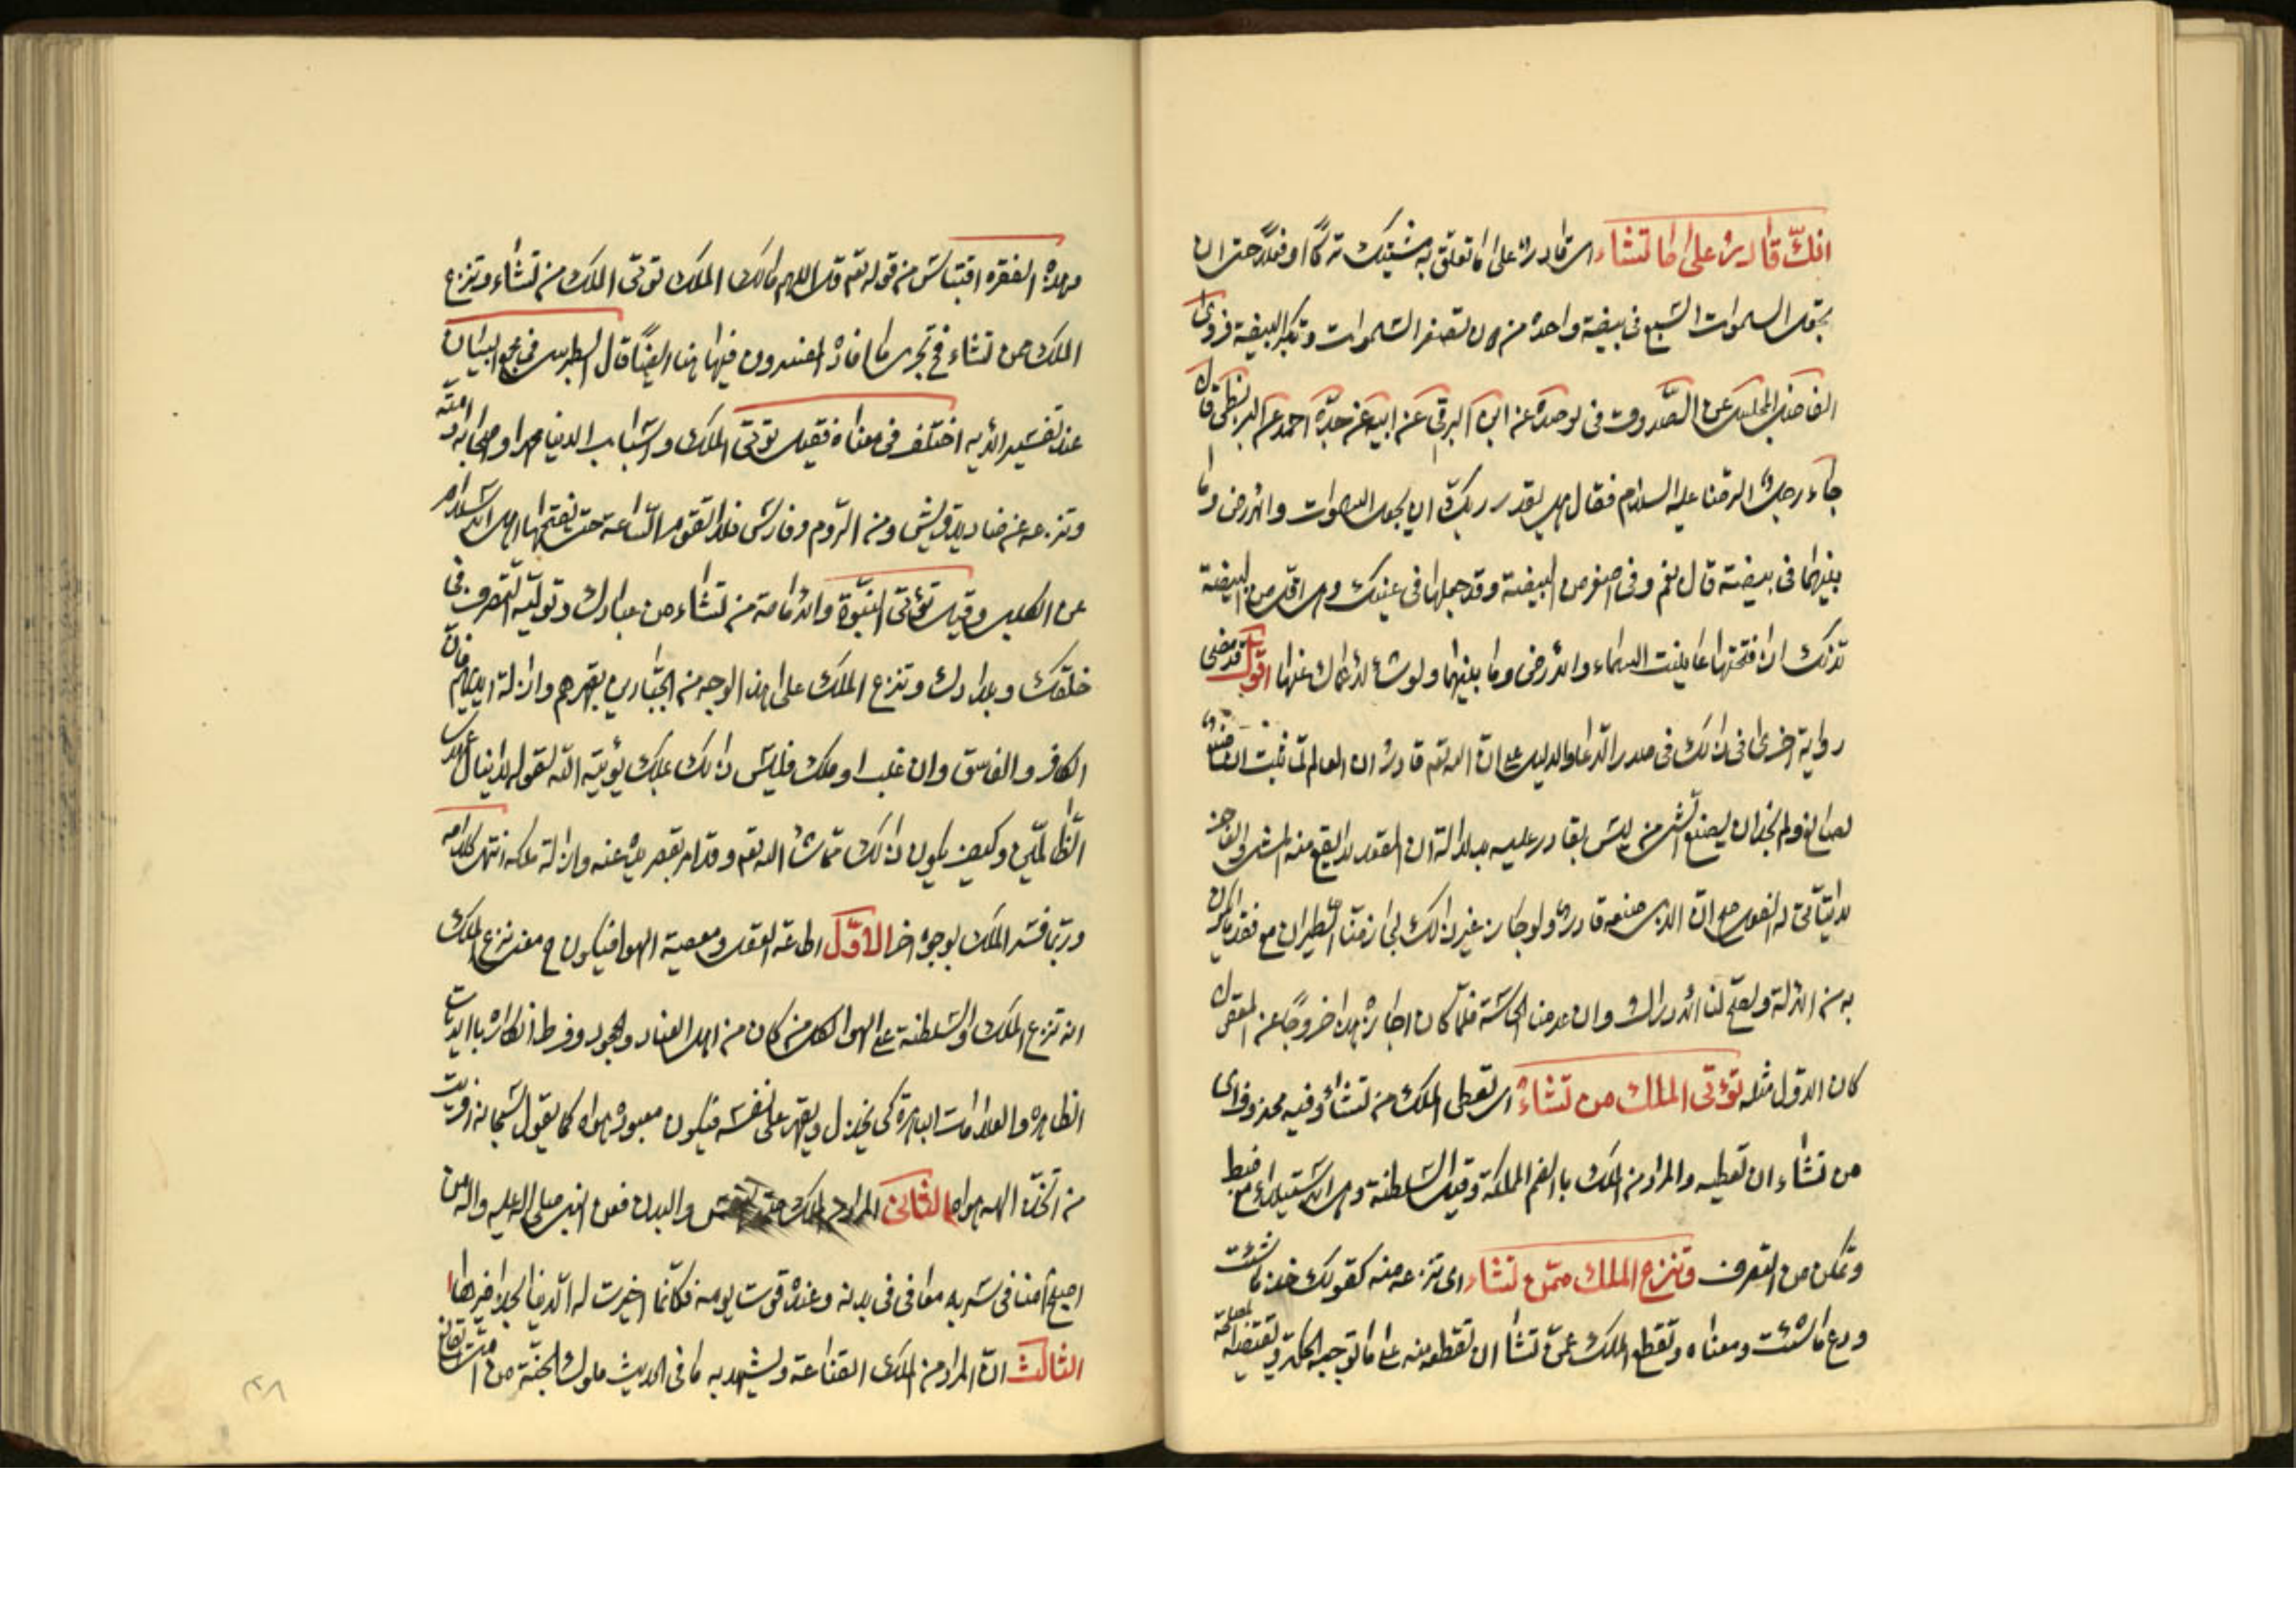 انك قادر على ما تشاء اى قادر على ما تعلق به مشيتك تركًا او فعلا حتى ان
يجعل السموات السبع فى بيضة واحدة من دون تصغر السموات وتكبر البيضة فروى
الفاضل المجلسى عن الصدوق فى توحيده عن ابن البرقى عن ابيه عن جده احمد عن البزنطى قال
جاء رجل الى الرضا عليه السلام فقال هل يقدر ربك ان يجعل السموات والارض وما
بينهما فى بيضة قال نعم وفى اصغر من البيضة وقد جعلها فى عينك وهى اقل من البيضة
لانك اذا فتحتها عاينت السماء والارض وما بينهما ولو شاء لاعماك عنها اقول قد مضى
رواية اخرى فى ذلك فى صدر الدعا والدليل على ان الله تعم قادر ان العالم لما ثبت انه
لصانع ولم نجد ان يصنع الشئ من ليس بقادر عليه بدلالة ان المقعد لا يقع منه المشى والعاجز
لا يتأتى له الفعل صح ان الذى صنعه قادر ولو جاز غير ذلك لجاز منا الطيران مع فقد ما يكون
به من الالة ولصح لنا الادراك وان عدمنا الحاسة فلما كان اجازة هذا خروجًا عن المعقول
كان الاول مثله تؤتى الملك من تشاء اى تعطى الملك من تشاء وفيه محذوف اى
من تشاء ان تعطيه والمراد من الملك بالضم المملكة وقيل السلطنة وهى الاستيلاء مع ضبط
وتمكن من التصرف وتنزع الملك ممن تشاء اى تنزعه منه كقولك خذ ما شئت
ودع ما شئت ومعناه وتقطع الملك عمن تشا ان تقطعه منه على ما توجبه الحكمة وتقتضيه المصلحة
وهذه الفقره اقتباس من قوله تعم قل اللهم مالك الملك توتى الملك من تشاء وتنزع
الملك ممن تشاء فح تجرى ما افاده المفسرون فيها هنا ايضًا قال الطبرسى فى مجمع البيان
عند تفسير الايه اختلف فى معناه فقيل توتى الملك واسباب الدنيا محمدا واصحابه وامته
وتنزعه عن صناديد قريش ومن الروم وفارس فلا تقوم الساعة حتى يفتحها اهل الاسلام
عن الكلبى وقيل تؤتى النبوة والامامة من تشاء من عبادك وتوليه التصرف فى
خلقك وبلادك وتنزع الملك على هذا الوجه من الجبارين بقهرهم وازالة ايديهم فان
الكافر والفاسق وان غلب او ملك فليس ذلك بملك يؤتيه الله لقوله لا ينال عهدى
الظالمين وكيف يكون ذلك مما شاء الله تعم وقد امر بقصر يده عنه وازالة ملكه انتهى كلامه
وربما فسر الملك بوجوه اخر الاول اطاعة العقل ومعصية الهوا فيكون ح معنى نزع الملك
انه تنزع الملك والسلطنة على الهوا لكل من كان من اهل العناد والجحود وفرط انكاره بالايات
الظاهره والعلامات الباهرة كى يخذل ويقهر على نفسه فيكون معبوده هواه كما يقول سبحانه افرايت
من اتخذ الهه هواه الثانى المراد من الملك صحة النفس والبدن فعن النبى صلى الله عليه واله من
اصبح آمنا فى سربه معافى فى بدنه وعنده قوت يومه فكانما اخيرت له الدنيا بحذافيرها
الثالث ان المراد من الملك القناعة ويشهد به ما فى الحديث ملوك الجنة من امتى